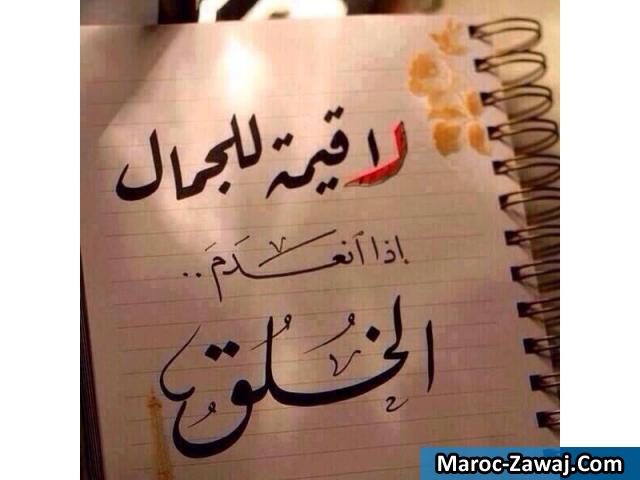 لا قيمة للجمال
إذا ٱنعَدَمَ..
الخُلُقُ
Maroc-Zawaj.Com